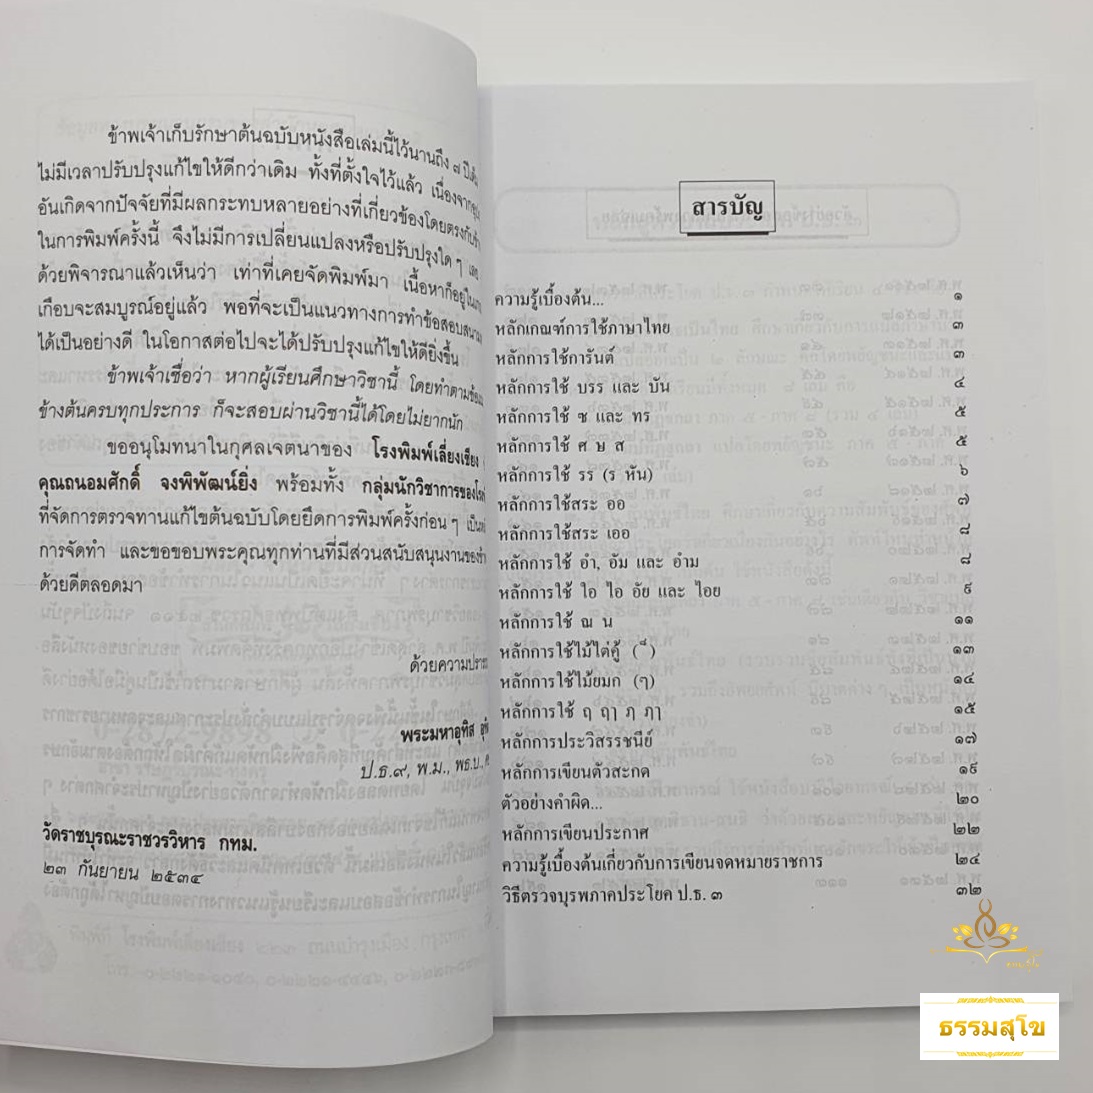 ข้าพเจ้าเก็บรักษาต้นฉบับหนังสือเล่มนี้ไว้นานถึง ๗ ปีเต็ม
ไม่มีเวลาปรับปรุงแก้ไขให้ดีกว่าเดิม ทั้งที่ตั้งใจไว้แล้ว เนื่องจาก
อันเกิดจากปัจจัยที่มีผลกระทบหลายอย่างที่เกี่ยวข้องโดยตรงกับ
ในการพิมพ์ครั้งนี้ จึงไม่มีการเปลี่ยนแปลงหรือปรับปรุงใด ๆ เลย
ด้วยพิจารณาแล้วเห็นว่า เท่าที่เคยจัดพิมพ์มา เนื้อหาก็อยู่ใน
เกือบจะสมบูรณ์อยู่แล้ว พอที่จะเป็นแนวทางการทำข้อสอบสนาม
ได้เป็นอย่างดี ในโอกาสต่อไปจะได้ปรับปรุงแก้ไขให้ดียิ่งขึ้น
ข้าพเจ้าเชื่อว่า หากผู้เรียนศึกษาวิชานี้ โดยทำตาม
ข้างต้นครบทุกประการ ก็จะสอบผ่านวิชานี้ได้โดยไม่ยากนัก
ขออนุโมทนาในกุศลเจตนาของ โรงพิมพ์เลี่ยงเชียง
คุณถนอมศักดิ์ จงพิพัฒน์ยิ่ง พร้อมทั้ง กลุ่มนักวิชาการของโรง
ที่จัดการตรวจทานแก้ไขต้นฉบับโดยยึดการพิมพ์ครั้งก่อน ๆ เป็น
การจัดทำ และขอขอบพระคุณทุกท่านที่มีส่วนสนับสนุนงานของ
ด้วยดีตลอดมา
ด้วยความ
พระมหาอุทิส
ป.ธ.๙, พ.ม., พธ.บ.,
วัดราชบุรณะราชวรวิหาร กทม.
๒๓ กันยายน ๒๕๓๔
สารบัญ
ความรู้เบื้องต้น... ๑
หลักเกณฑ์การใช้ภาษาไทย ๓
หลักการใช้การันต์ ๓
หลักการใช้ บรร และ บัน ๔
หลักการใช้ ซ และ ทร ๕
หลักการใช้ ศ ษ ส ๕
หลักการใช้ รร (ร หัน) ๖
หลักการใช้สระ ออ ๗
หลักการใช้สระ เออ ๘
หลักการใช้ อำ, อัม และ อำม ๘
หลักการใช้ ใอ ไอ อัย และ ไอย ๙
หลักการใช้ ณ น ๑๑
หลักการใช้ไม้ไต่คู้ (็) ๑๓
หลักการใช้ไม้ยมก (ๆ) ๑๔
หลักการใช้ ฤ ฤๅ ฦ ฦๅ ๑๕
หลักการประวิสรรชนีย์ ๑๗
หลักการเขียนตัวสะกด ๑๙
ตัวอย่างคำผิด... ๒๐
หลักการเขียนประกาศ ๒๒
ความรู้เบื้องต้นเกี่ยวกับการเขียนจดหมายราชการ ๒๔
วิธีตรวจบุรพภาคประโยค ป.ธ. ๓ ๓๒
ธรรมสุโข